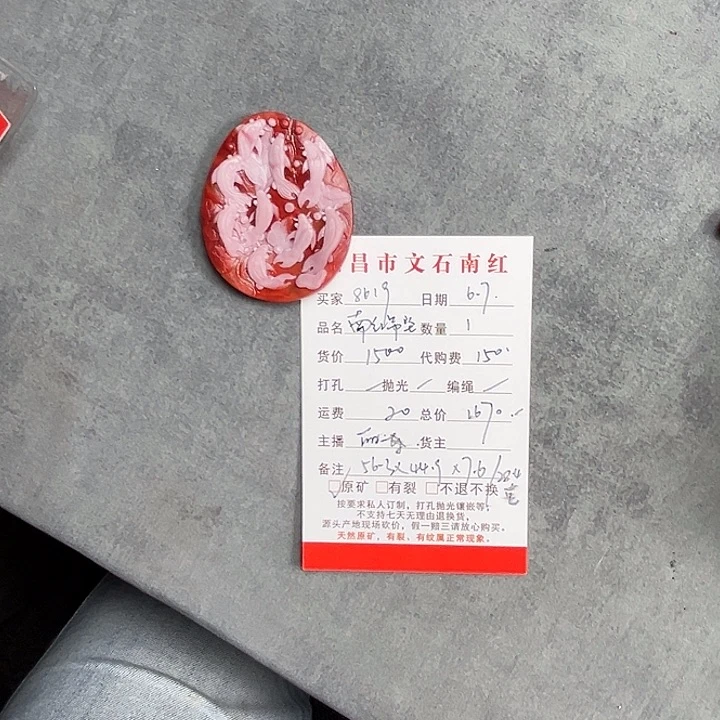 昌市文石南红
买家 8619 日期 6.7.
品名 南红吊坠 数量 1
货价 1500 代购费 150
打孔 / 抛光 / 编绳 /
运费 20 总价 1670.-
主播 货主
备注 56.3×44.9×7.6/22.4
原矿 有裂 不退不换
按要求私人订制，打孔抛光镶嵌等，
不支持七天无理由退换货，
源头产地现场砍价，假一赔三请放心购买。
天然原矿，有裂、有纹属正常现象。